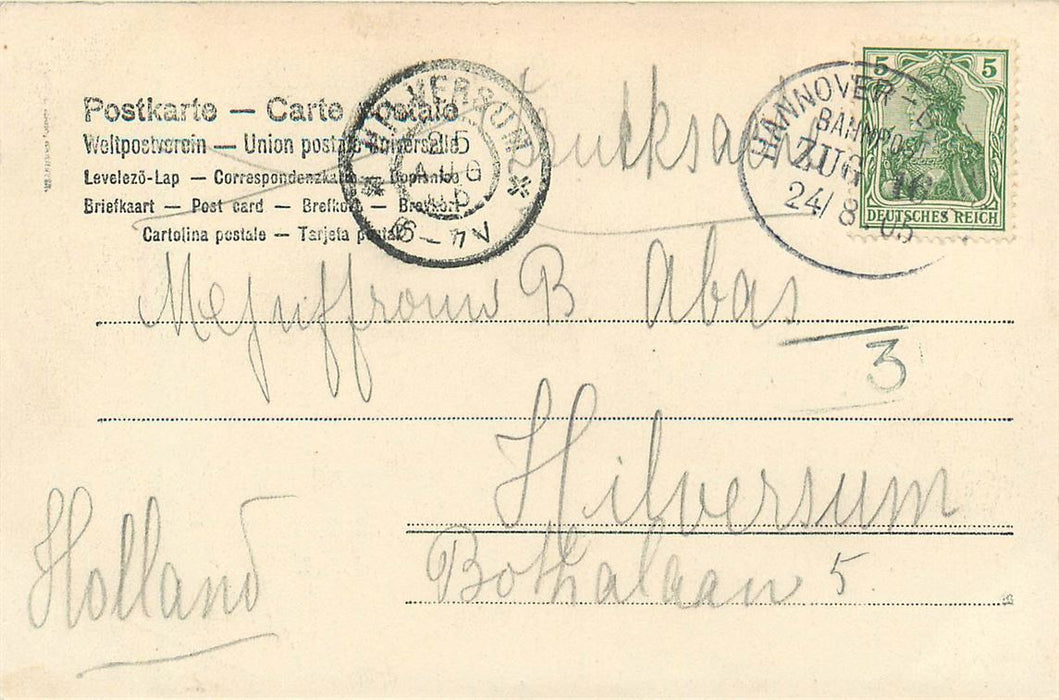 Postkarte — Carte postale
Weltpostverein — Union postale universelle
Levelezö-Lap — Correspondenzkarte — Dopisnice
Briefkaart — Post card — Brefkort — Brevkort
Cartolina postale — Tarjeta postal
Drucksache
HILVERSUM
25
AUG
05
6-7V
HANNOVER
BAHNPOST
ZUG 16
24/8.05
5 5
DEUTSCHES REICH
Mejuffrouw B. Abas
3
Hilversum
Bothalaan 5
Holland